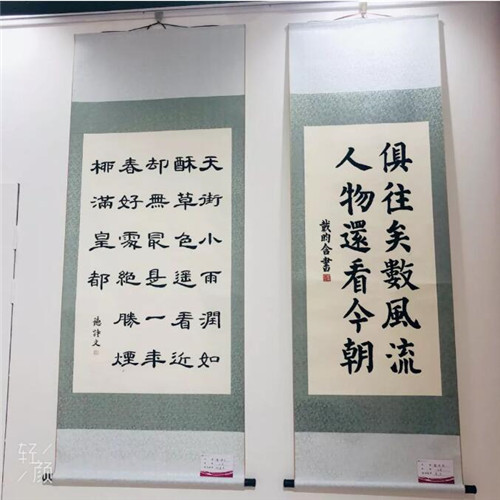 天街小雨潤如
酥草色遥看近
却無最是一年
春好處絕勝煙
柳滿皇都
俱往矣數風流
人物還看今朝
戴昀書
轻颜